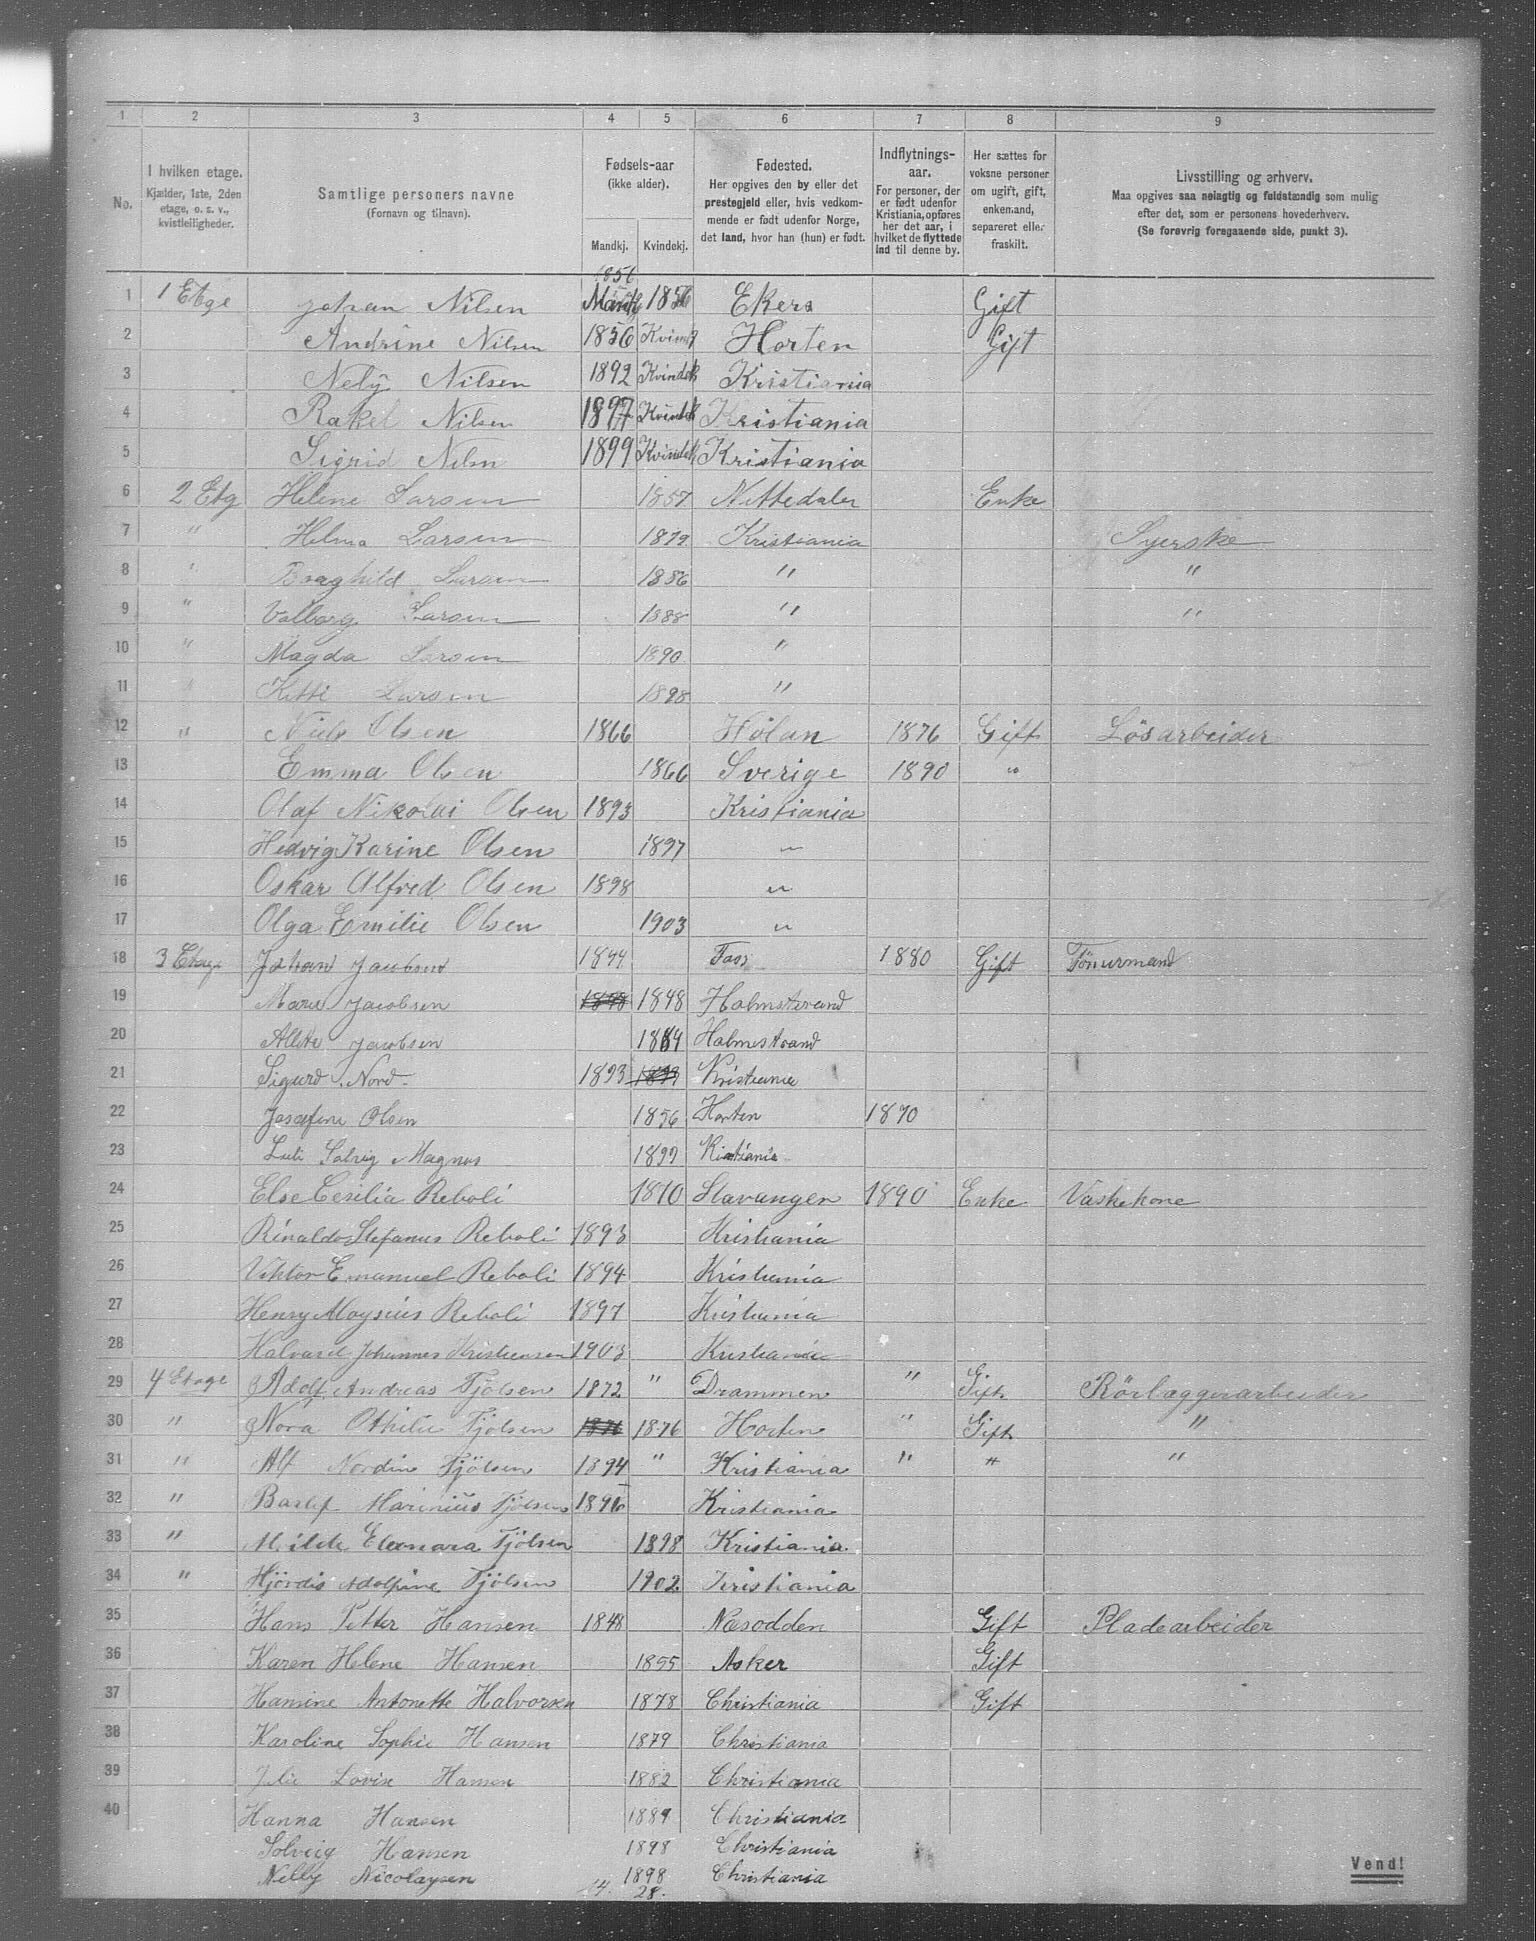 1 2 3 4 5 6 7 8 9
No.
I hvilken etage. Kjælder, 1ste, 2den etage, o. s. v., kvistleiligheder.
Samtlige personers navne (Fornavn og tilnavn).
Fødsels-aar (ikke alder).
Mandkj. Kvindekj.
Fødested. Her opgives den by eller det prestegjeld eller, hvis vedkommende er født udenfor Norge, det land, hvor han (hun) er født.
Indflytnings-aar. For personer, der er født udenfor Kristiania, opføres her det aar, i hvilket de flyttede ind til denne by.
Her sættes for voksne personer om ugift, gift, enkemand, separeret eller fraskilt.
Livsstilling og erhverv. Maa opgives saa nøiagtig og fuldstændig som mulig efter det, som er personens hovederhverv. (Se forøvrig foregaaende side, punkt 3).
1856
1 1 Etge Johan Nilsen 1856 Ekers Gift
2 Andrine Nilsen 1856 Kvindk Horten Gift
3 Nely Nilsen 1892 Kvindek Kristiania
4 Rakel Nilsen 1897 Kvindek Kristiania
5 Sigrid Nilsn 1899 Kvindek Kristiania
6 2 Etg Helene Larsen 1857 Nittedaler Enke
7 " Helma Larsen 1879 Kristiania Syerske
8 " Borghild Larsen 1886 " "
9 " Valborg Larsen 1888 " "
10 " Magda Larsen 1890 "
11 " Kitti Larsen 1898 "
12 " Niels Olsen 1866 Hølan 1876 Gift Løsarbeider
13 Emma Olsen 1866 Sverige 1890 "
14 Olaf Nikolai Olsen 1893 Kristiania
15 Hedvig Karine Olsen 1897 "
16 Oskar Alfred Olsen 1898 "
17 Olga Emilie Olsen 1903 "
18 3 Etage Johan Jacobsen 1844 1880 Gift Tömmermand
19 Marie Jacobsen 1848 Holmstrand
20 Jacobsen 1884 Holmestrand
21 Sigurd Nord 1893 Kristiania
22 Josefine Olsen 1856 Horten 1870
23 Solveig Magnus 1899 Kristiania
24 Else Cesilia Reboli 1870 Stavanger 1890 Enke Vaskekone
25 Rinaldo Stefanus Reboli 1893 Kristiania
26 Viktor Emanuel Reboli 1894 Kristiania
27 Henry Aloysius Reboli 1897 Kristiania
28 Halvard Johannes Kristiansen 1903 Kristiania
29 4 Etage Adolf Andreas Fjölsen 1872 " Drammen " Gift Rörlæggerarbeider
30 " Nora Othilie Fjölsen 1876 Horten " Gift "
31 " Alf Nordin Fjölsen 1894 " Kristiania " " "
32 " Marinius Fjölsen 1896 Kristiania
33 " Milde Eleonora Fjölsen 1898 Kristiania
34 " Hjördis Adolfine Fjölsen 1902 Kristiania
35 Hans Petter Hansen 1848 Næsodden Gift Pladearbeider
36 Karen Helene Hansen 1855 Asker Gift
37 Hansine Antonette Halvorsen 1878 Christiania Gift
38 Karoline Sophie Hansen 1879 Christiania
39 Julie Lovise Hansen 1882 Christiania
40 Hanna Hansen 1889 Christiania
Solveig Hansen 1898 Christiania
Nelly Nicolaysen 1898 Christiania
14. 28.
Vend!